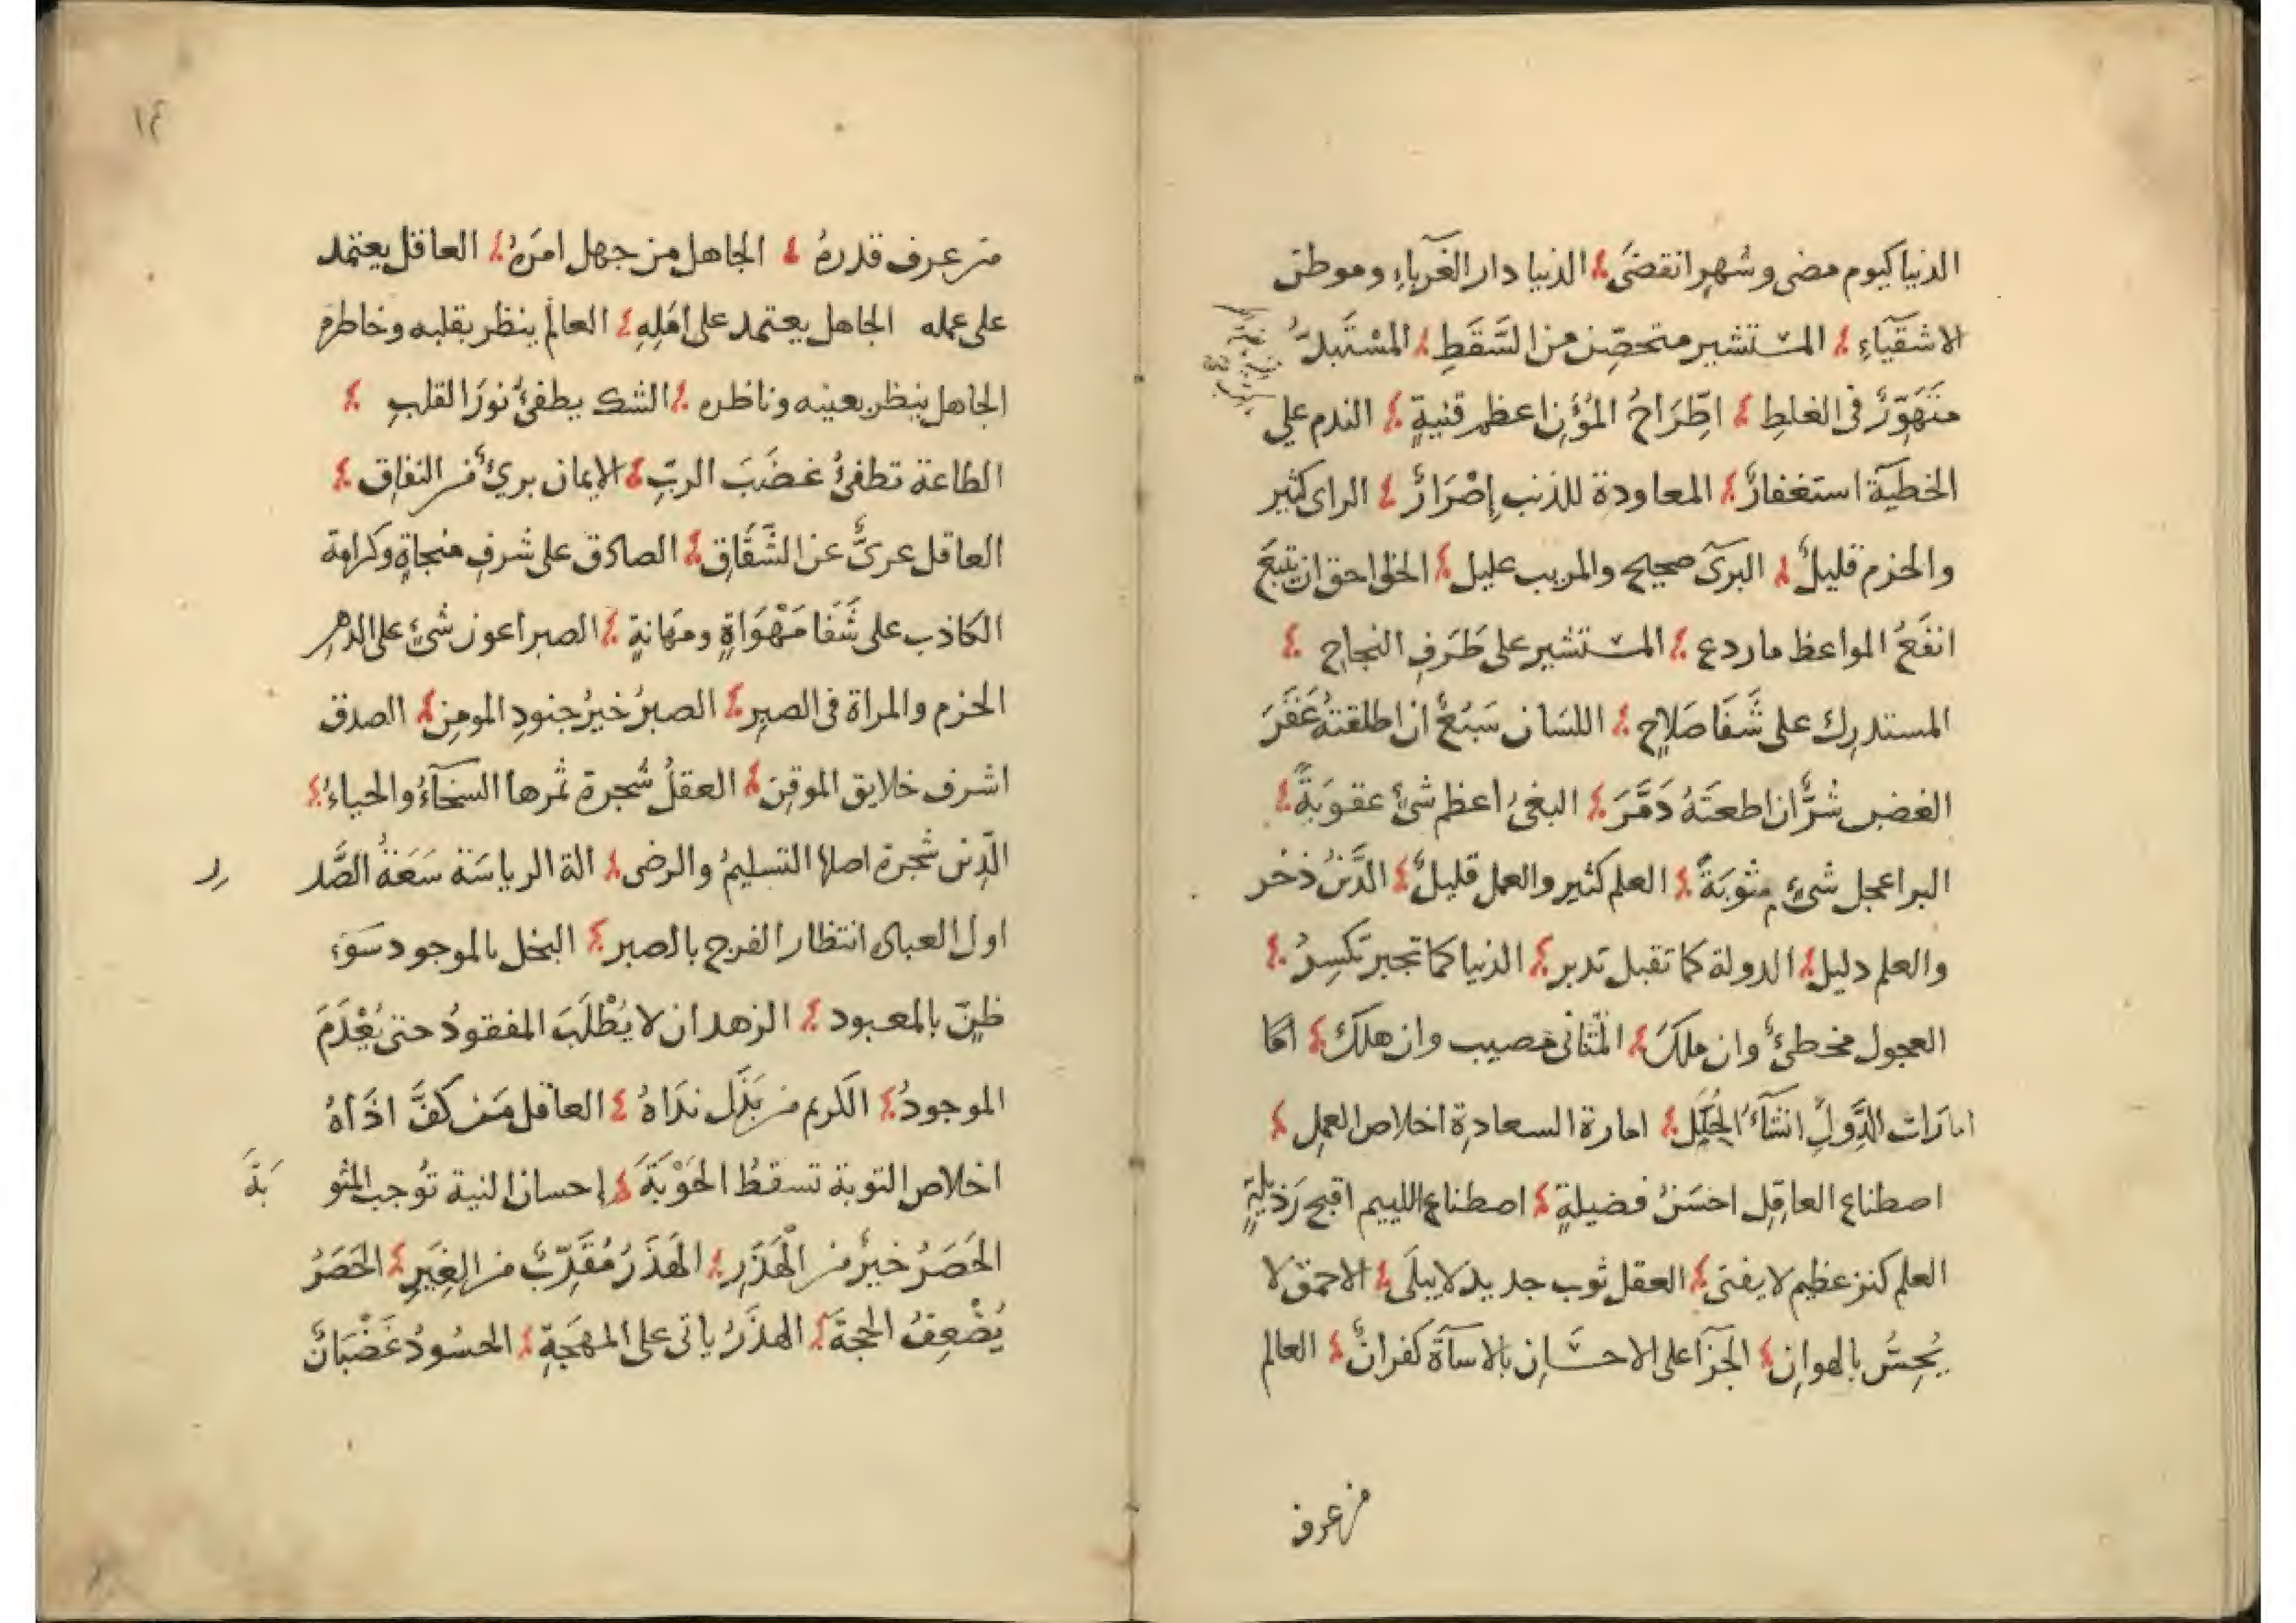 الدنيا كيوم مضى وشهرٍ انقضَى الدنيا دار الغرَبآءِ وموطن
الاشقيآءِ المستشير متحصّن من السَّقَطِ المسْتَبدُّ
متَهَوِّرٌ في الغلطِ اطِّرَاحُ المُؤَنِ اعظم قنيةٍ الندم على
الخطيَة استغفارٌ المعاودة للذنبِ إصْرَارٌ الراى كثير
والحزم قليلٌ البرىَ صحيح والمريب عليل الحق احق ان يتبعَ
انفَعُ المواعظ ما ردع المستشير على طَرَفِ النجاحِ
المستدرِك على شَفَا صَلاحٍ اللسَان سَبُعٌ ان اطلقتهُ عَقَرَ
الغضب شرٌّ ان اطعتَهُ دَمَّرَ البغىُ اعظم شئٍ عقوبَةً
البر اعجل شئٍ مثوبَةً العلم كثير والعمل قليلٌ الدِّينُ ذخر
والعلم دليل الدولة كما تقبل تدبر الدنيا كما تجبر تكسِرُ
العجول مخطئٌ وان ملكَ المتأنى مصيب وان هلكَ
امارَات الدَّولِ انشآءُ الحِيَلِ امارة السعادةِ اخلاص العملِ
اصطناع العاقِلِ احسَنُ فضيلةٍ اصطناع اللييم اقبح رَذيلَةٍ
العلم كنز عظيم لا يفنى العقل ثوب جديد لا يبلَى الاحمق لا
يُحِسُّ بالهوانِ الجزآ على الاحسَانِ بالاسآة كفرانٌ العالم
من عرف
١٤
من عرف قدرهُ الجاهل من جهل امرَهُ العاقل يعتمد
على عمله الجاهل يعتمد على امَلِهِ العالم ينظر بقلبه وخاطره
الجاهل ينظر بعينه وناظره الشك يطفئُ نورَ القلبِ
الطاعة تطفئُ غضَبَ الربِّ الايمان برىٌ من النفاق
العاقل عرىٌّ عن الشّقَاق الصادق على شرفِ منجاةٍ وكرامة
الكاذب على شَفَا مَهْوَاةٍ ومهَانةٍ الصبر اعون شئٍ على الدهرِ
الحزم والمراة فى الصبرِ الصبرُ خيرُ جنودِ المومِن الصدق
اشرف خلايق الموقِن العقلُ شجرة ثمرها السخآءُ والحياءُ
الدِّين شجرة اصلها التسليمُ والرضى الة الرياسَة سَعَةُ الصَّد ر
اول العبادة انتظار الفرج بالصبر البخل بالموجود سَوءُ
ظنٍّ بالمعبود الزهد ان لا يُطْلَبَ المفقودُ حتى يُعْدَمَ
الموجودُ الكريم من بَذَلَ ندَاهُ العاقل مَن كفَّ اذَاهُ
اخلاص التوبة تسقطُ الحَوْبَةَ إحسان النية تُوجب المثو بَةَ
الحَصَرُ خيرٌ من الْهَذَرِ الهَذَرُ مُقَرِّبٌ من الغِيَرِ الحَصَرُ
يُضْعِفُ الحجةَ الهذَرُ ياتى على المهجَةِ الحسُودُ غَضْبَانٌ